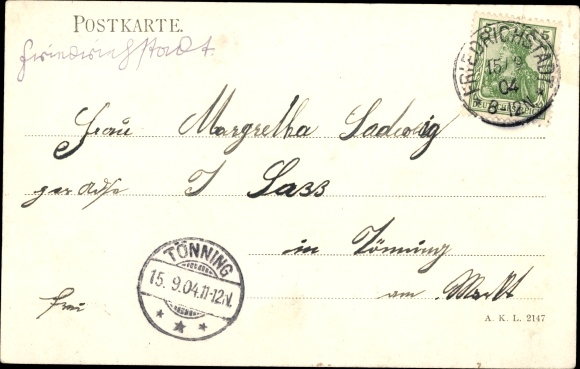 POSTKARTE.
Friedrichstadt
FRIEDRICHSTADT
15 9
04
8-12N.
Frau Margretha Ladewig
per Adr J Sass
in Tönning
am Markt
TÖNNING
15. 9.04.11-12N.
frei
A. K. L. 2147